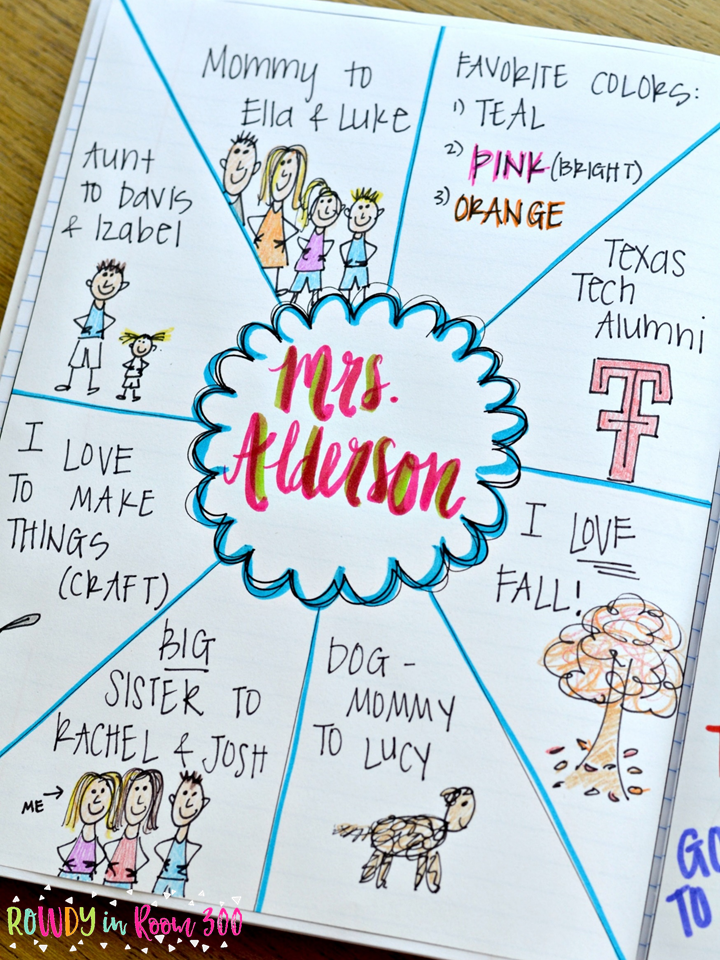 Mommy to
Ella & Luke
FAVORITE COLORS:
1) TEAL
2) PINK (BRIGHT)
3) ORANGE
Aunt
to Davis
& Izabel
Texas
Tech
Alumni
T
Mrs.
Alderson
I LOVE
TO MAKE
THINGS
(CRAFT)
I LOVE
FALL!
BIG
SISTER TO
RACHEL & JOSH
ME →
DOG-
MOMMY
TO LUCY
TO
ROWDY in Room 300